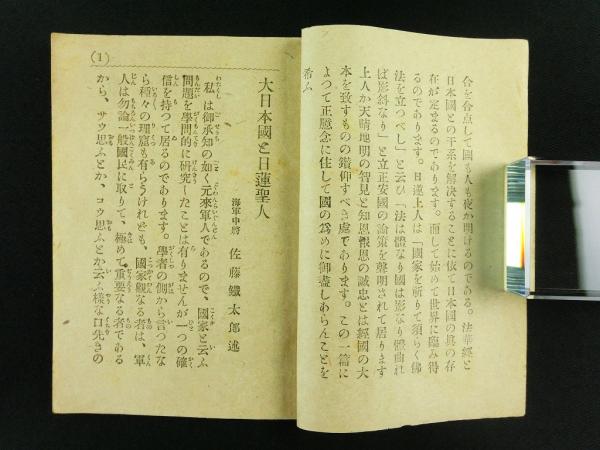 合を合点して國も人も夜か明けるのである。法華經と
日本國との干系を解決することに依て日本國の眞の存
在が定まるのであります。而して始めて世界に臨み得
るのであります。日蓮上人は「國家を祈りて須らく佛
法を立つべし」と云ひ「法は體なり國は影なり體曲れ
ば影斜なり」と立正安國の論策を聲明されて居ります
上人か天晴地明の智見と知恩報恩の誠忠とは經國の大
本を致すものの鑽仰すべき處であります。この一篇に
よつて正憶念に住して國の爲めに御盡しあらんことを
希ふ
大日本國と日蓮聖人
海軍中將 佐藤鐵太郎述
私は御承知の如く元來軍人であるので、國家と云ふ
問題を學問的に研究したことは有りませんが一つの確
信を持つて居るのであります。學者の側から言つたな
ら種々の理窟も有らうけれども、國家觀なる者は、軍
人は勿論一般國民に取りて、極めて重要なる者である
から、サウ思ふとか、コウ思ふとか云ふ樣な口先きの
(1)